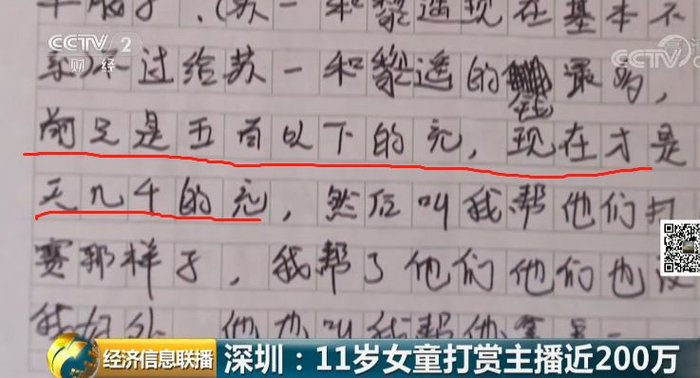 苏一和黎遥现在基本不
CCTV 2
财经
CCTV
不过给苏一和黎遥的钱最多，
前只是五百以下的充，现在才是
天几千的充，然后叫我帮他们打
赛那样子，我帮了他们他们也没
他也叫我帮他
经济信息联播 深圳：11岁女童打赏主播近200万